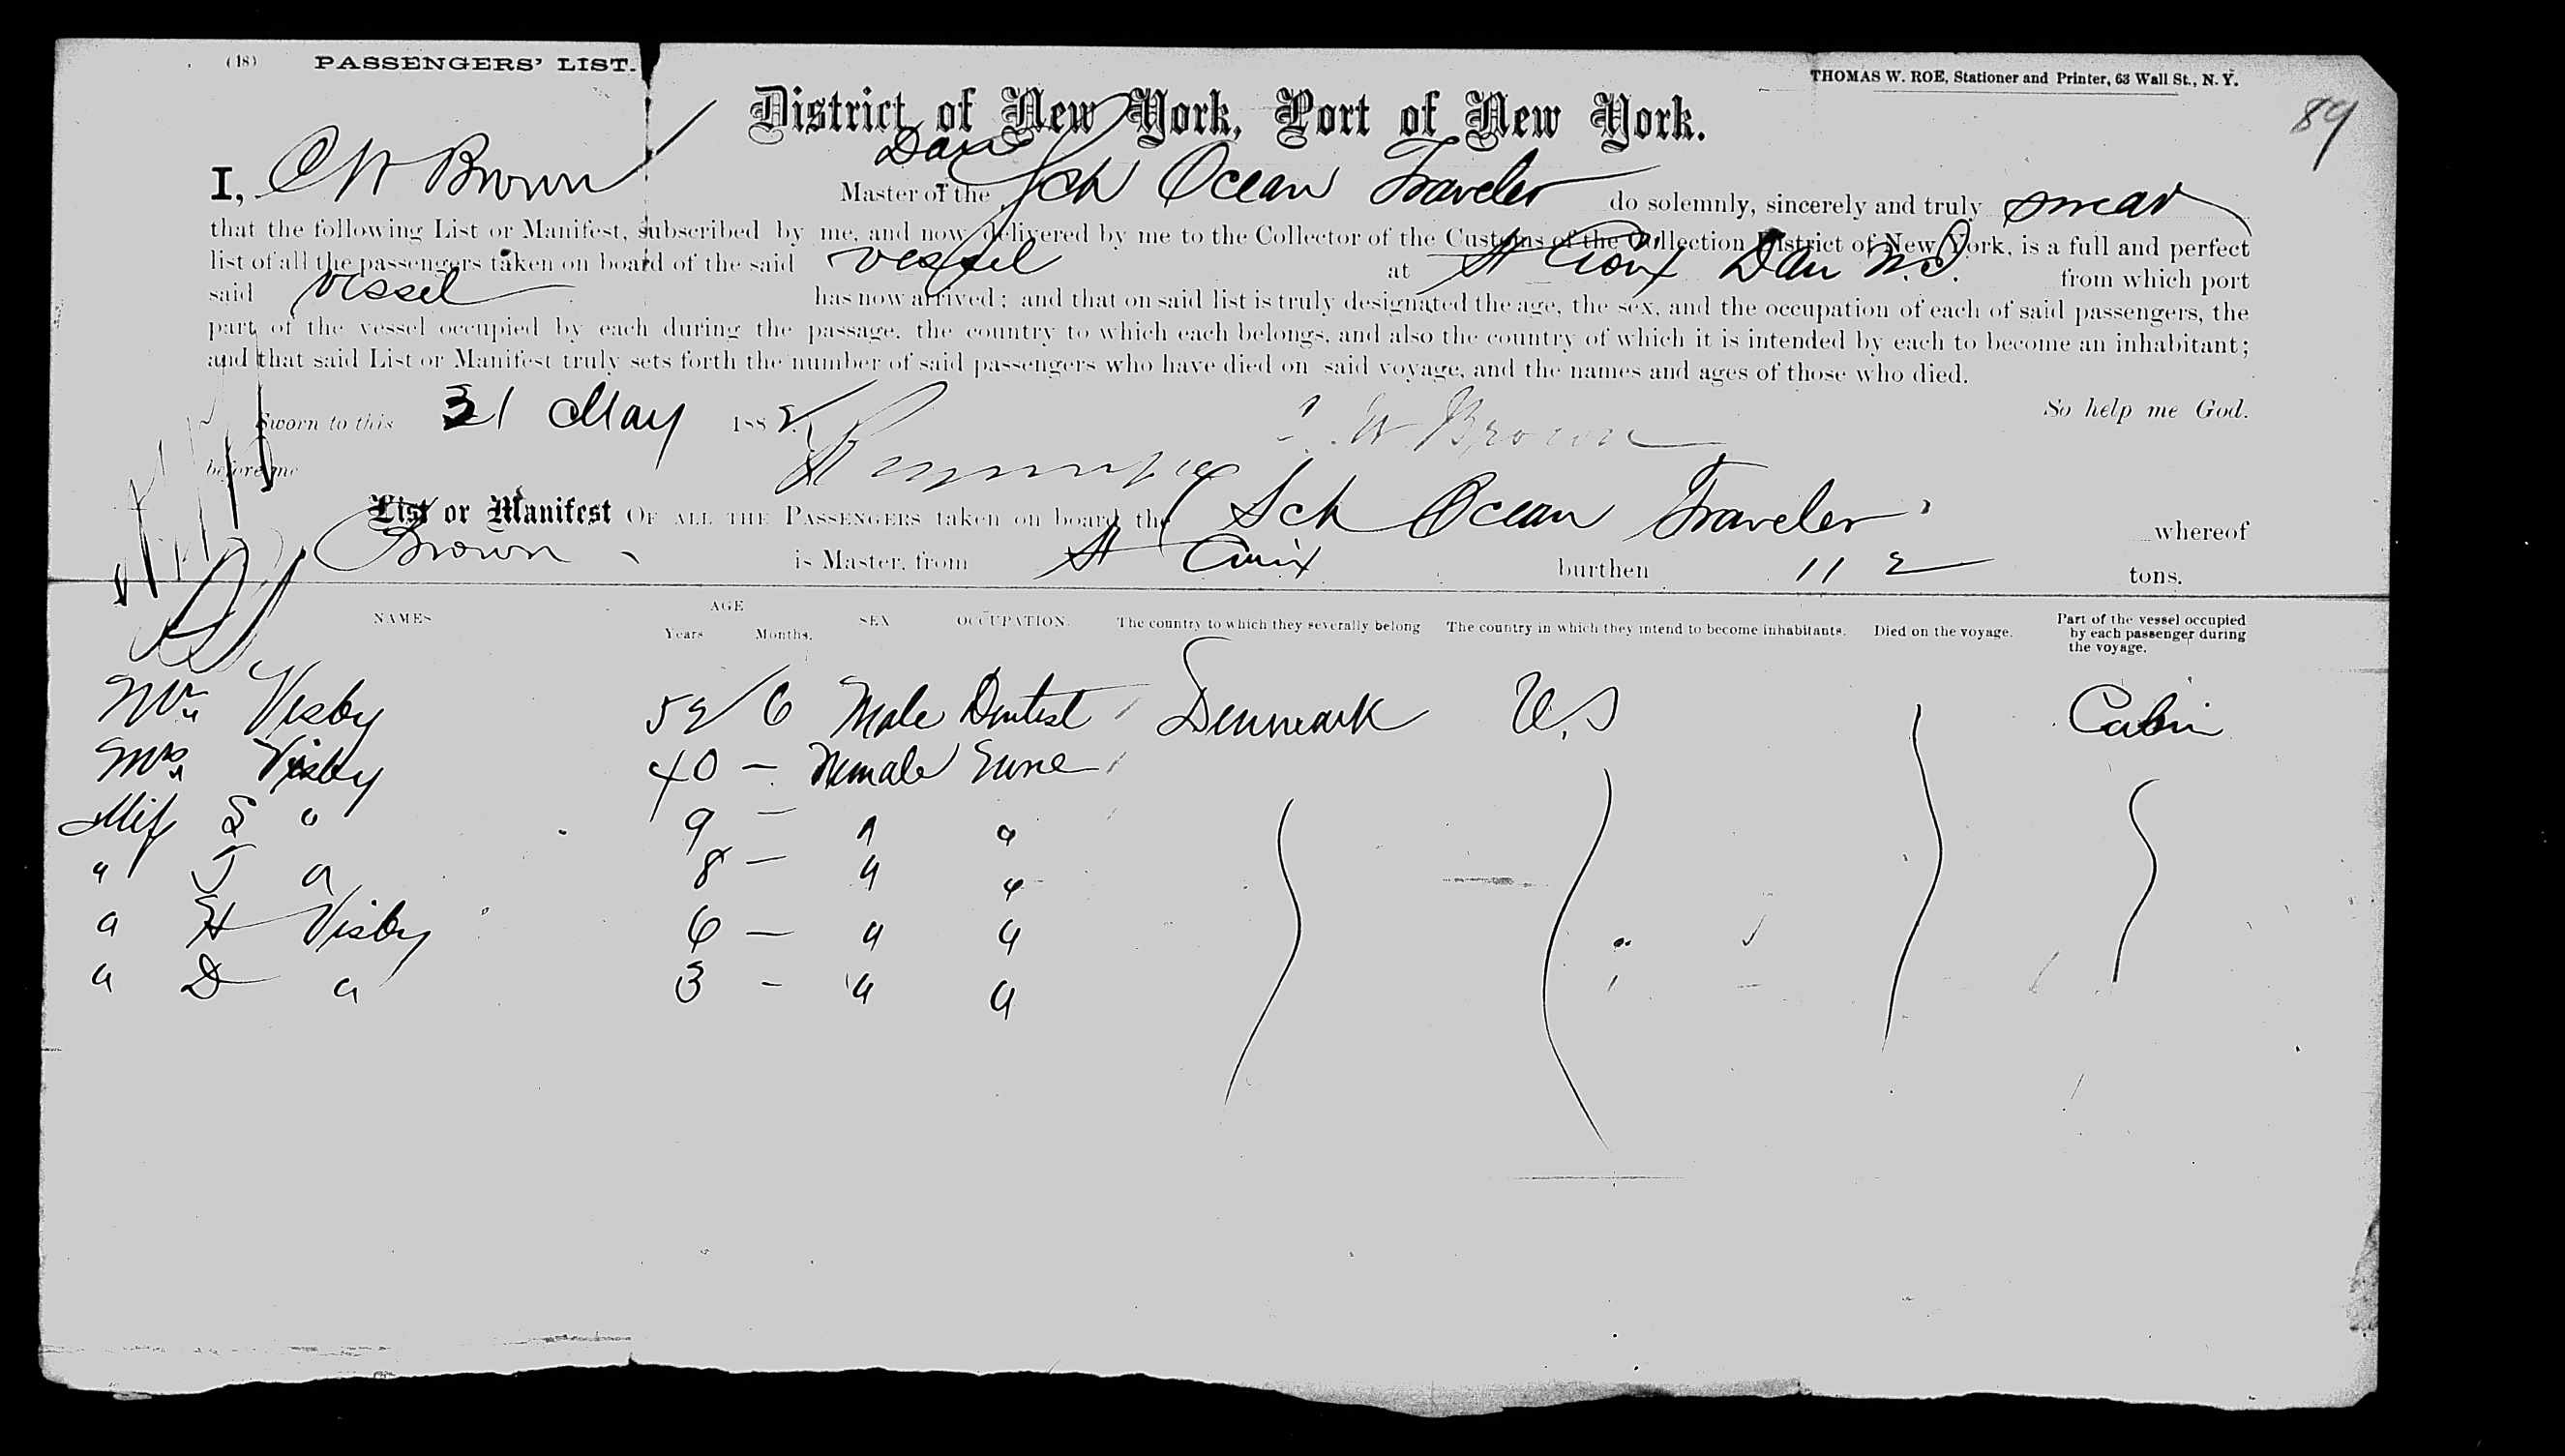 (48) PASSENGERS' LIST.
THOMAS W. ROE, Stationer and Printer, 63 Wall St., N. Y.
89
District of New York, Port of New York.
Dan
I, C W Brown Master of the Sch Ocean Traveler do solemnly, sincerely and truly swear
that the following List or Manifest, subscribed by me, and now delivered by me to the Collector of the Customs of the Collection District of New York, is a full and perfect
list of all the passengers taken on board of the said vessel at St Croix Dan W.I. from which port
said vessel has now arrived; and that on said list is truly designated the age, the sex, and the occupation of each of said passengers, the
part of the vessel occupied by each during the passage, the country to which each belongs, and also the country of which it is intended by each to become an inhabitant;
and that said List or Manifest truly sets forth the number of said passengers who have died on said voyage, and the names and ages of those who died.
So help me God.
Sworn to this 31 May 1882. C. W Brown
before me
List or Manifest OF ALL THE PASSENGERS taken on board the Sch Ocean Traveler whereof
Brown is Master, from St Croix burthen 112 tons.
NAMES AGE Years Months. SEX OCCUPATION. The country to which they severally belong The country in which they intend to become inhabitants. Died on the voyage. Part of the vessel occupied by each passenger during the voyage.
Mr Visby 52 6 Male Dentist Denmark U.S Cabin
Mrs Visby 40 — Female
Miss S " 9 — " "
" J " 8 — " "
" H Visby 6 — " "
" D " 3 - " "